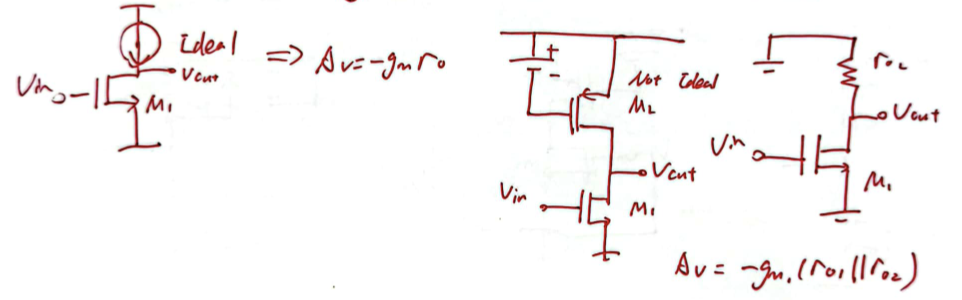 Ideal
⇒ Av = -gm ro
Vin
Vout
M1
+
-
Not Ideal
M2
Vout
Vin
M1
ro2
Vout
Vin
M1
Av = -gm1 (ro1 || ro2)